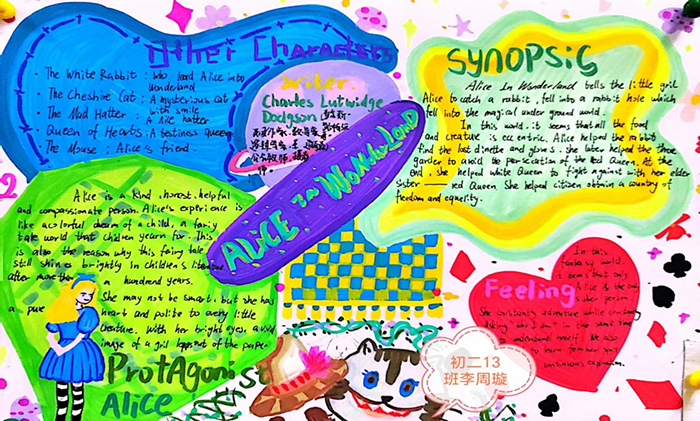 Other Characters
· The White Rabbit : who lead Alice into
Wonderland
· The Cheshire Cat : A mysterious cat
with smile
· The Mad Hatter : A like hatter
· Queen of Hearts : A testiness Queen
· The Mouse : Alice's friend
writer
Charles Lutwidge
Dodgson
ALiCE In WoNdeRLaNd
SYNOPSIS
Alice In Wonderland tells the little gril
Alice to catch a rabbit , fell into a rabbit hole which
fell into the magical under ground world.
In this world. it seems that all the food
and creature is eccentric, Alice helped the rabbit
find the last dinette and gloves. she later helped the three
garder to avoid the persecation of the Red Queen. At the
end, she helped white Queen to fight against with her elder
sister —— red Queen. She helped citizen obtain a country of
freedom and equality.
Alice is a kind, honest, helpful
and compassionate person. Alice's experience is
like a colorful dream of a child, a fairy
tale world that children yearn for. This
is also the reason why this fairy tale
still shines brightly in children's literature
after more than a hundred years.
She may not be smart, but she has
a pure heart and polite to every little
creature. With her bright eyes, a vivid
image of a gril the paper
ProtAgonist
Alice
Feeling
In this
fantasy world,
it seems that only
Alice is the only
person
She constantly adventure while constantly
in the same time
to understand herself. We also
to learn
初二13
班李周璇